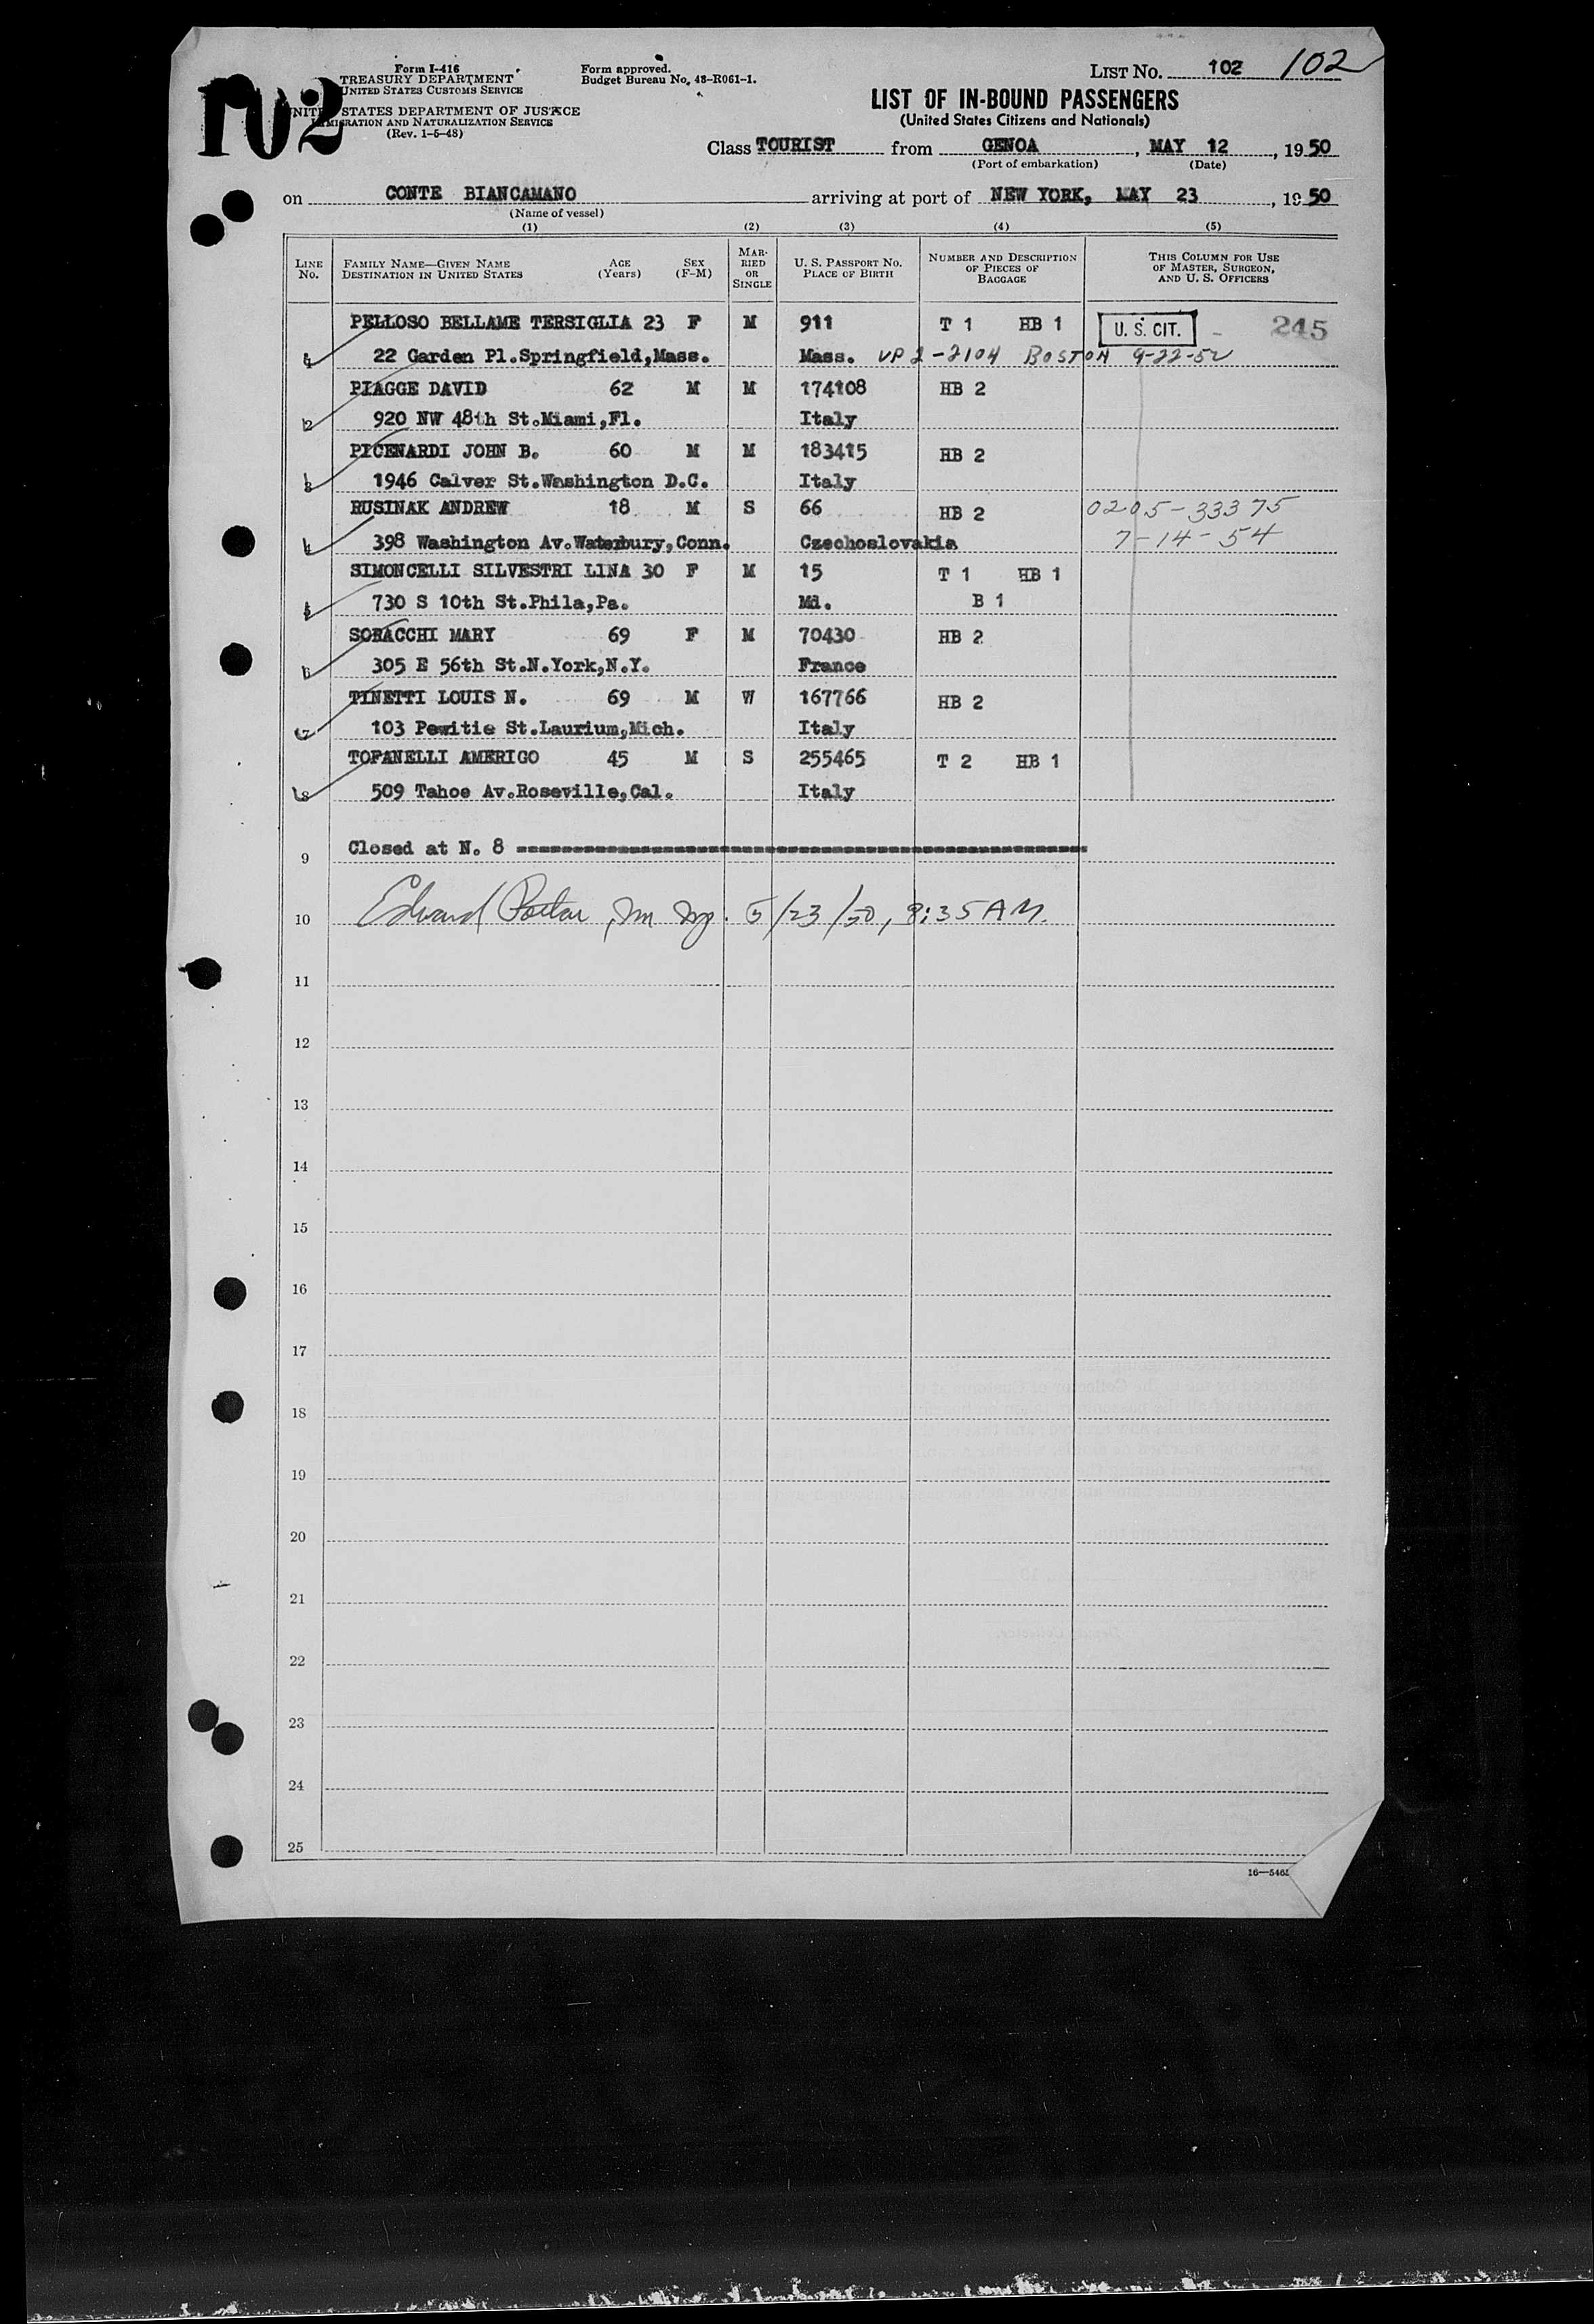 Form I-416
TREASURY DEPARTMENT
UNITED STATES CUSTOMS SERVICE
STATES DEPARTMENT OF JUSTICE
IMMIGRATION AND NATURALIZATION SERVICE
(Rev. 1-5-48)
102
Form approved.
Budget Bureau No. 48-R061-1.
LIST NO. 102 102
LIST OF IN-BOUND PASSENGERS
(United States Citizens and Nationals)
Class TOURIST from GENOA, MAY 12, 1950
(Port of embarkation) (Date)
on CONTE BIANCAMANO arriving at port of NEW YORK, MAY 23, 1950
(Name of vessel)
(1) (2) (3) (4) (5)
LINE No. FAMILY NAME—GIVEN NAME DESTINATION IN UNITED STATES AGE (Years) SEX (F-M) MARRIED OR SINGLE U. S. PASSPORT NO. PLACE OF BIRTH NUMBER AND DESCRIPTION OF PIECES OF BAGGAGE THIS COLUMN FOR USE OF MASTER, SURGEON, AND U. S. OFFICERS
PELLOSO BELLAME TERSIGLIA 23 F M 911 T 1 HB 1 U. S. CIT. - 245
1 22 Garden Pl.Springfield,Mass. Mass. VP 2-2104 BOSTON 9-22-52
PIAGGE DAVID 62 M M 174108 HB 2
2 920 NW 48th St.Miami,Fl. Italy
PICENARDI JOHN B. 60 M M 183415 HB 2
3 1946 Calver St.Washington D.C. Italy
RUSINAK ANDREW 18 M S 66 HB 2 0205-33375
4 398 Washington Av.Waterbury,Conn. Czechoslovakia 7-14-54
SIMONCELLI SILVESTRI LINA 30 F M 15 T 1 HB 1
5 730 S 10th St.Phila,Pa. Md. B 1
SORACCHI MARY 69 F M 70430 HB 2
6 305 E 56th St.N.York,N.Y. France
TINETTI LOUIS N. 69 M W 167766 HB 2
7 103 Pewitie St.Laurium,Mich. Italy
TOFANELLI AMERIGO 45 M S 255465 T 2 HB 1
8 509 Tahoe Av.Roseville,Cal. Italy
9 Closed at N. 8
10 Edward 5/23/50, 8:35 AM.
11
12
13
14
15
16
17
18
19
20
21
22
23
24
25